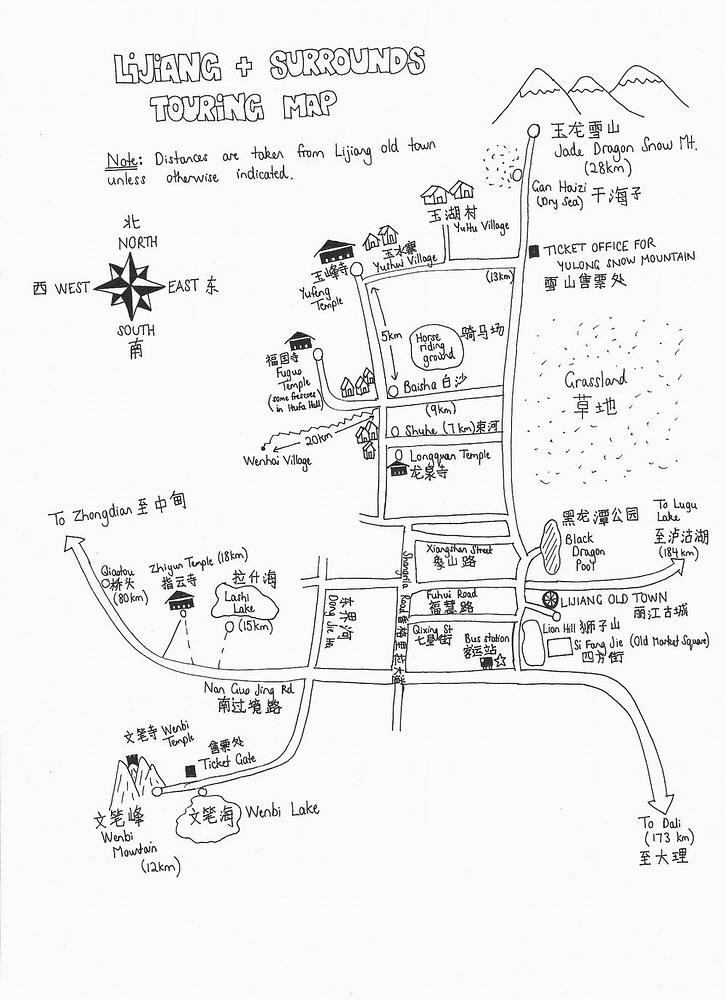 LIJIANG + SURROUNDS
TOURING MAP
Note: Distances are taken from Lijiang old town
unless otherwise indicated.
北
NORTH
西 WEST
EAST 东
SOUTH
南
玉龙雪山
Jade Dragon Snow Mt.
(28km)
Gan Haizi
(Dry Sea)
干海子
玉湖村
YuHu Village
玉水寨
Yushui Village
玉峰寺
Yufeng
Temple
TICKET OFFICE FOR
YULONG SNOW MOUNTAIN
雪山售票处
(13km)
5km
Horse
riding
ground
骑马场
福国寺
Fuguo
Temple
(some frescoes
in Hufa Hall)
Baisha 白沙
(9km)
Grassland
草地
Shuhe (7km) 束河
20km
Wenhai Village
Longquan Temple
龙泉寺
To Zhongdian 至中甸
黑龙潭公园
Black
Dragon
Pool
To Lugu
Lake
至泸沽湖
(184km)
Qiaotou
桥头
(80km)
Zhiyun Temple (18km)
指云寺
拉什海
Lashi
Lake
(15km)
Xiangshan Street
象山路
Shangrila Road 香格里拉大道
Dong Jie He
东界河
Fuhui Road
福慧路
LIJIANG OLD TOWN
丽江古城
Qixing St
七星街
Bus station
客运站
Lion Hill 狮子山
Si Fang Jie (Old Market Square)
四方街
Nan Guo Jing Rd
南过境路
文笔寺 Wenbi
Temple
售票处
Ticket Gate
文笔峰
Wenbi
Mountain
(12km)
文笔海
Wenbi Lake
To Dali
(173 km)
至大理